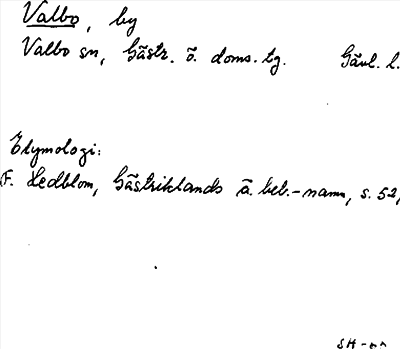 Valbo, by
Valbo sn, Gästr. ö. doms. tg. Gävl. l.
Etymologi:
F. Hedblom, Gästriklands ä. beb.-namn, s. 52,
SH-